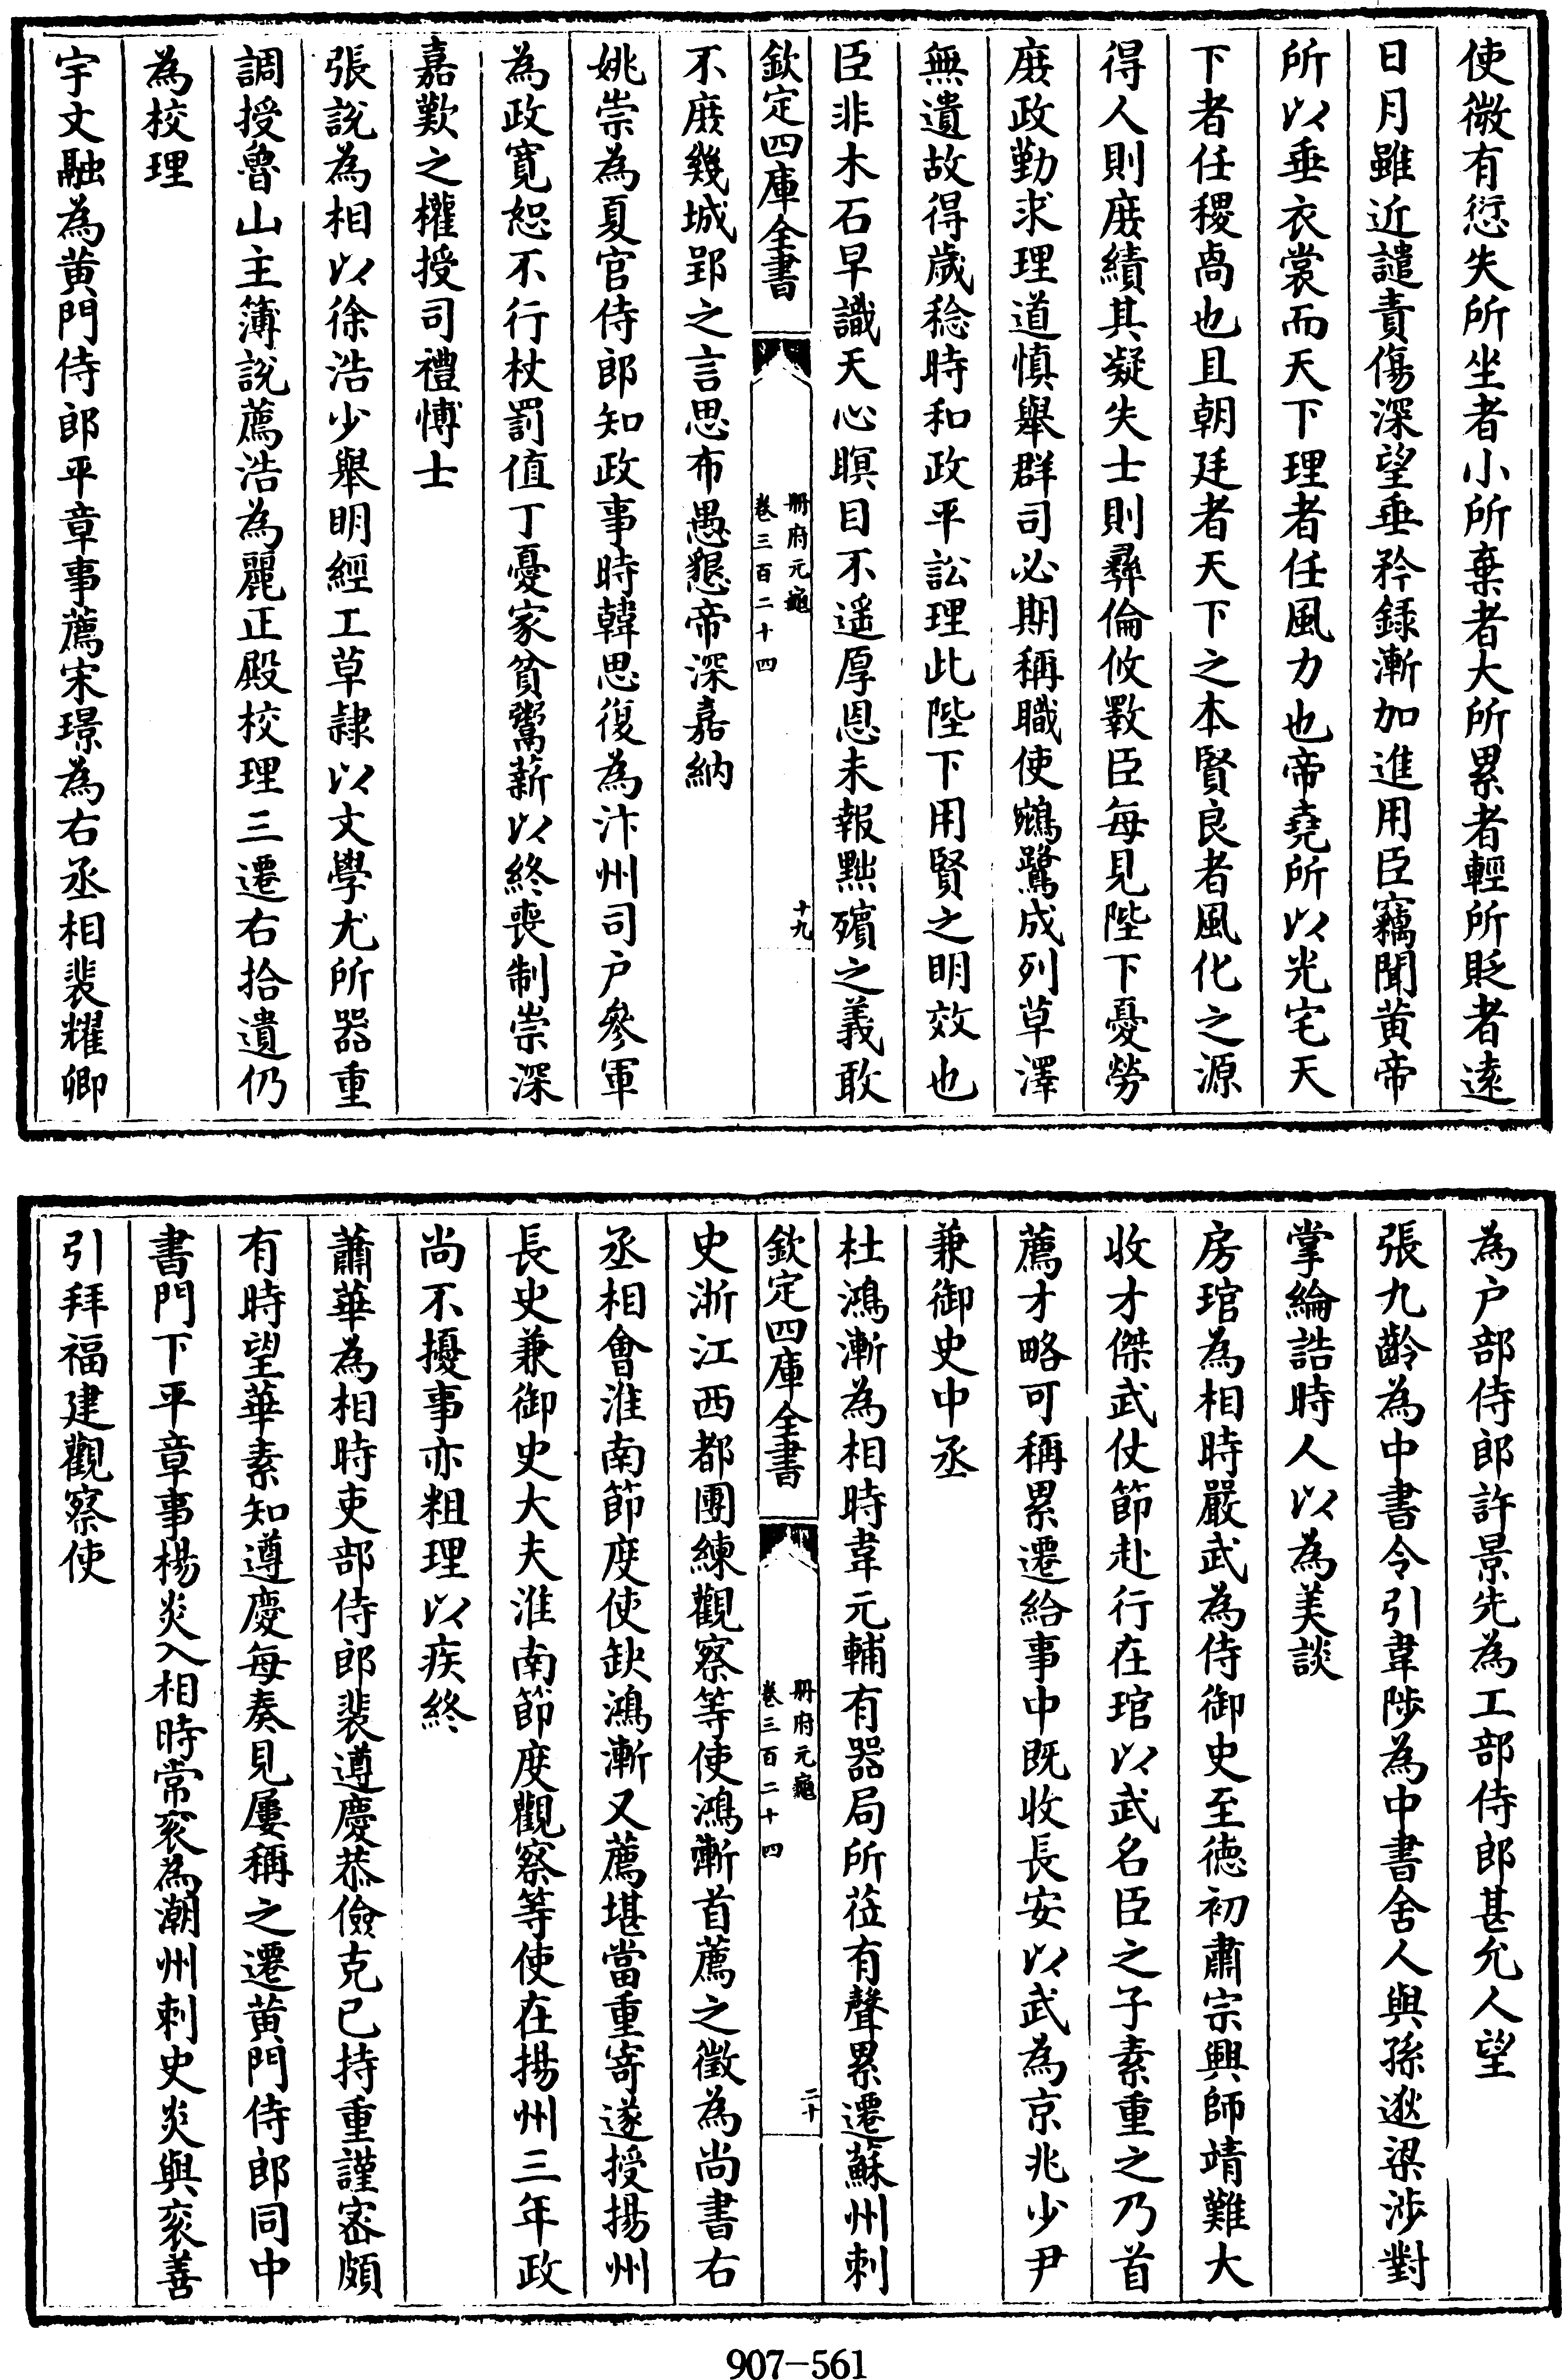 使微有愆失所坐者小所棄者大所累者輕所貶者逺
日月雖近譴責傷深望垂矜録漸加進用臣竊聞黄帝
所以垂衣裳而天下理者任風力也帝堯所以光宅天
下者任稷卨也且朝廷者天下之本賢良者風化之源
得人則庶績其凝失士則彞倫攸斁臣每見陛下憂勞
庶政勤求理道慎舉群司必期稱職使鵷鷺成列草澤
無遺故得歲稔時和政平訟理此陛下用賢之明效也
臣非木石早識天心瞑目不遥厚恩未報黜殯之義敢
欽定四庫全書
册府元龜
卷三百二十四
十九
不庶幾城郢之言思布愚懇帝深嘉納
姚崇為夏官侍郎知政事時韓思復為汴州司户參軍
為政寛恕不行杖罰值丁憂家貧鬻薪以終喪制崇深
嘉歎之櫂授司禮博士
張說為相以徐浩少舉明經工草隷以文學尤所器重
調授魯山主簿說薦浩為麗正殿校理三遷右拾遺仍
為校理
宇文融為黄門侍郎平章事薦宋璟為右丞相裴耀卿
為户部侍郎許景先為工部侍郎甚允人望
張九齡為中書令引韋陟為中書舍人與孫逖梁渉對
掌綸誥時人以為美談
房琯為相時嚴武為侍御史至徳初肅宗興師靖難大
收才傑武仗節赴行在琯以武名臣之子素重之乃首
薦才略可稱累遷給事中既收長安以武為京兆少尹
兼御史中丞
杜鴻漸為相時韋元輔有器局所莅有聲累遷蘇州刺
欽定四庫全書
册府元龜
卷三百二十四
二十
史浙江西都團練觀察等使鴻漸首薦之徵為尚書右
丞相會淮南節度使缺鴻漸又薦堪當重寄遂授揚州
長史兼御史大夫淮南節度觀察等使在揚州三年政
尚不擾事亦粗理以疾終
蕭華為相時吏部侍郎裴遵慶恭儉克已持重謹宻頗
有時望華素知遵慶每奏見屢稱之遷黄門侍郎同中
書門下平章事楊炎入相時常衮為潮州刺史炎與衮善
引拜福建觀察使
907-561